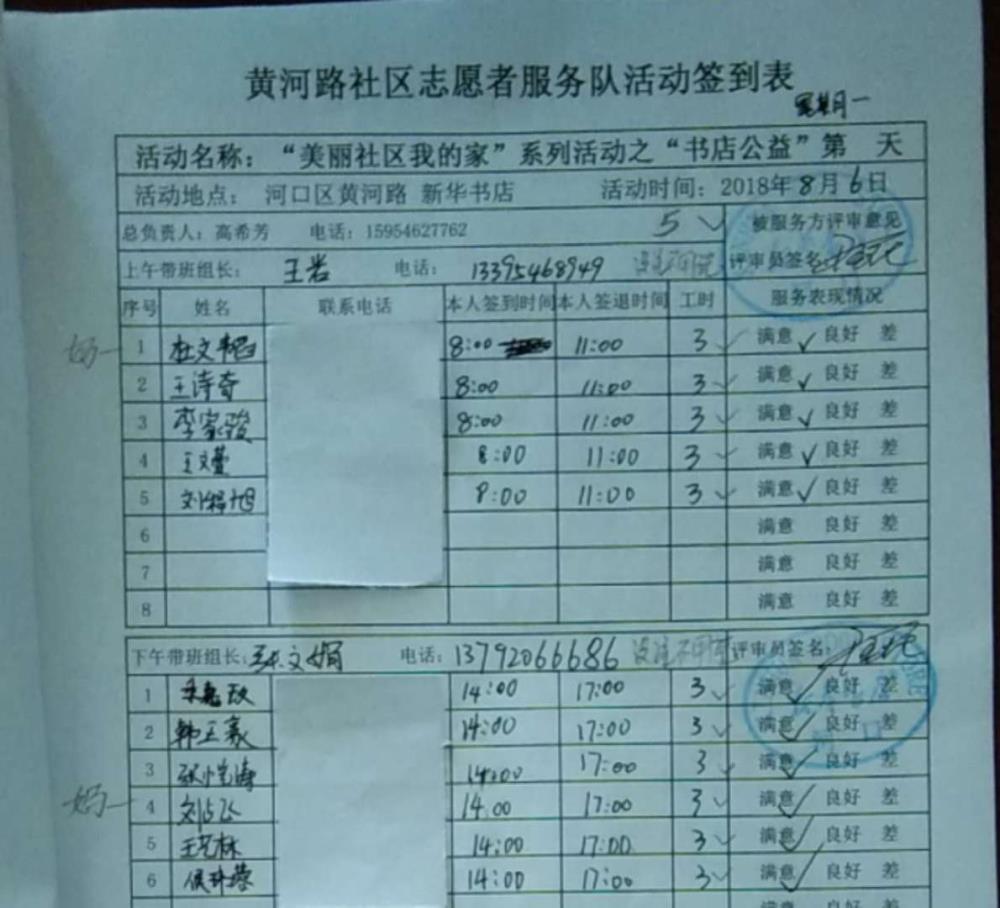 黄河路社区志愿者服务队活动签到表
星期一
活动名称：“美丽社区我的家”系列活动之“书店公益”第 天
活动地点： 河口区黄河路 新华书店 活动时间：2018年8月6日
总负责人：高希芳 电话：15954627762 5 ✓ 被服务方评审意见
上午带班组长： 王岩 电话： 13395468949 评审员签名
序号 姓名 联系电话 本人签到时间 本人签退时间 工时 服务表现情况
1 8:00 11:00 3 ✓ 满意 ✓ 良好 差
2 王诗奇 8:00 11:00 3 ✓ 满意 ✓ 良好 差
3 李家骏 8:00 11:00 3 ✓ 满意 ✓ 良好 差
4 8:00 11:00 3 ✓ 满意 ✓ 良好 差
5 8:00 11:00 3 ✓ 满意 ✓ 良好 差
6 满意 良好 差
7 满意 良好 差
8 满意 良好 差
下午带班组长： 文娟 电话：13792066686 评审员签名：
1 14:00 17:00 3 ✓ 满意 ✓ 良好 差
2 14:00 17:00 3 ✓ 满意 ✓ 良好 差
3 14:00 17:00 3 ✓ 满意 ✓ 良好 差
妈 4 14:00 17:00 3 ✓ 满意 ✓ 良好 差
5 14:00 17:00 3 ✓ 满意 ✓ 良好 差
6 14:00 17:00 3 ✓ 满意 ✓ 良好 差